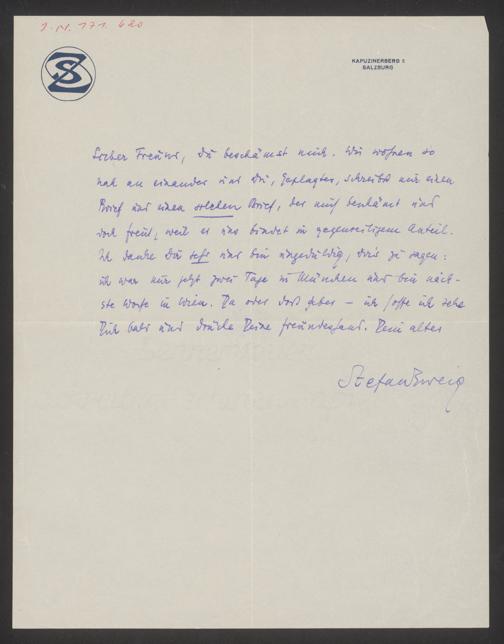 I.N. 171.620
SZ
KAPUZINERBERG 5
SALZBURG
Lieber Freund, Du beschämst mich. Wir wohnen so
nah an einander und Du, Geplagter, schreibst mir einen
Brief und einen solchen Brief, der mich beschämt und
doch freut, weil er uns bindet in gegenseitigem Anteil.
Ich danke Dir sehr und bin ungeduldig, dirs zu sagen:
ich war nur jetzt zwei Tage in München und bin näch-
ste Woche in Wien. Da oder dort aber – ich hoffe ich sehe
Dich bald und drücke Deine Freundeshand. Dein alter
Stefan Zweig